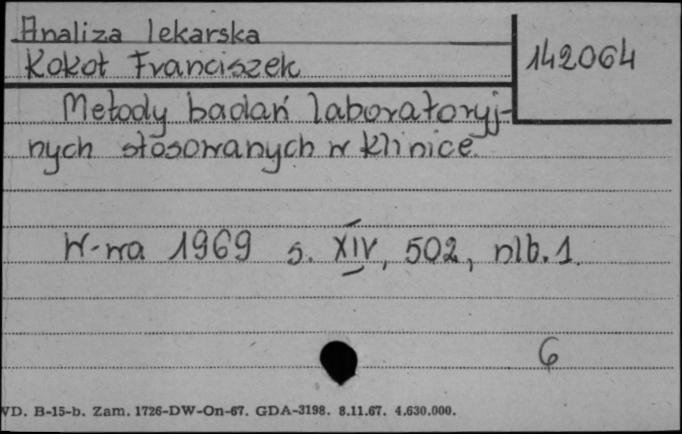 Analiza lekarska
Kokot Franciszek
142064
Metody badań laboratoryj-
nych stosowanych w klinice.
W-wa 1969 s. XIV, 502, nlb. 1.
6
VD. B-15-b. Zam. 1726-DW-On-67. GDA-3198. 8.11.67. 4.630.000.